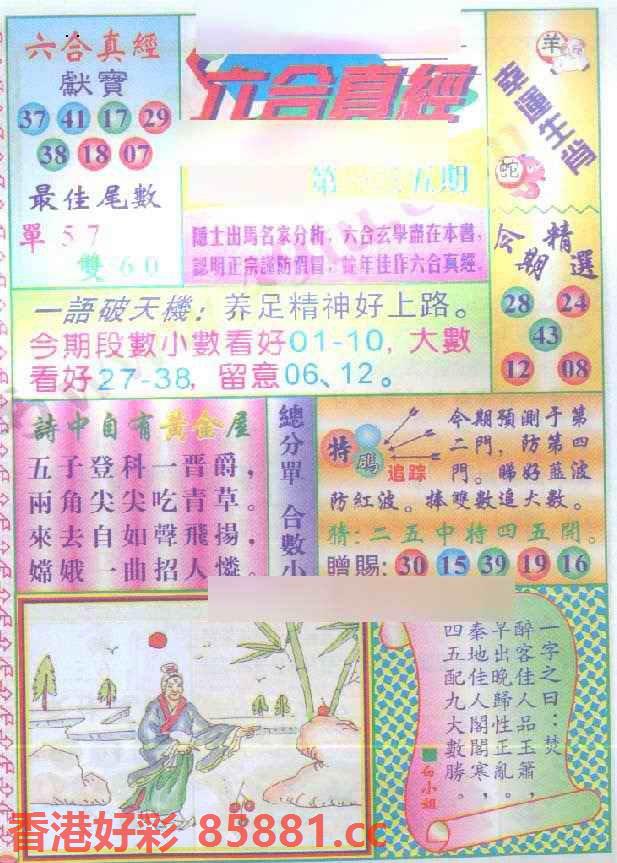 六合真經
獻寶
37 41 17 29
38 18 07
最佳尾數
單 5 7
雙 6 0
六合真經
第 五期
隱士出馬名家分析，六合玄學盡在本書，
認明正宗謹防假冒，蛇年佳作六合真經。
羊
幸運生肖
蛇
今期精選
28 24
43
12 08
一語破天機：養足精神好上路。
今期段數小數看好01-10，大數
看好27-38，留意06、12。
詩中自有黃金屋
五子登科一晋爵，
兩角尖尖吃青草。
來去自如聲飛揚，
嫦娥一曲招人憐。
總分單 合數小
特碼
追踪
今期預測于第
二門，防第四
門。睇好藍波
防紅波。捧雙數追大數。
猜：二五中特四五開。
贈賜：30 15 39 19 16
一字之曰：焚
醉客佳人品玉簫，
早出晚歸性正亂。
秦地佳人閣閣寒，
四五配九大數勝。
白小姐
香港好彩 85881.cc